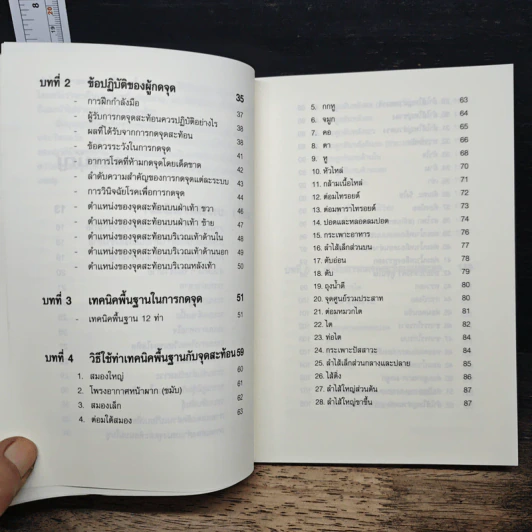 บทที่ 2 ข้อปฏิบัติของผู้กดจุด 35
- การฝึกกำลังมือ 37
- ผู้รับการกดจุดสะท้อนควรปฏิบัติอย่างไร 37
- ผลที่ได้รับจากการกดจุดสะท้อน 38
- ข้อควรระวังในการกดจุด 40
- อาการโรคที่ห้ามกดจุดโดยเด็ดขาด 41
- ลำดับความสำคัญของการกดจุดแต่ละระบบ 42
- การวินิจฉัยโรคเพื่อการกดจุด 44
- ตำแหน่งของจุดสะท้อนบนฝ่าเท้า ขวา 46
- ตำแหน่งของจุดสะท้อนบนฝ่าเท้า ซ้าย 47
- ตำแหน่งของจุดสะท้อนบริเวณเท้าด้านใน 48
- ตำแหน่งของจุดสะท้อนบริเวณเท้าด้านนอก 49
- ตำแหน่งของจุดสะท้อนบริเวณหลังเท้า 50
บทที่ 3 เทคนิคพื้นฐานในการกดจุด 51
- เทคนิคพื้นฐาน 12 ท่า 51
บทที่ 4 วิธีใช้ท่าเทคนิคพื้นฐานกับจุดสะท้อน 59
1. สมองใหญ่ 60
2. โพรงอากาศหน้าผาก (ขมับ) 61
3. สมองเล็ก 62
4. ต่อมใต้สมอง 63
5. กกหู 63
6. จมูก 64
7. คอ 65
8. ตา 66
9. หู 68
10. หัวไหล่ 69
11. กล้ามเนื้อไหล่ 71
12. ต่อมไทรอยด์ 72
13. ต่อมพาราไทรอยด์ 73
14. ปอดและหลอดลมปอด 74
15. กระเพาะอาหาร 76
16. ลำไส้เล็กส่วนบน 77
17. ตับอ่อน 78
18. ตับ 79
19. ถุงน้ำดี 80
20. จุดศูนย์รวมประสาท 80
21. ต่อมหมวกไต 81
22. ไต 82
23. ท่อไต 83
24. กระเพาะปัสสาวะ 84
25. ลำไส้เล็กส่วนกลางและปลาย 85
26. ไส้ติ่ง 86
27. ลำไส้ใหญ่ส่วนต้น 87
28. ลำไส้ใหญ่ขาขึ้น 87